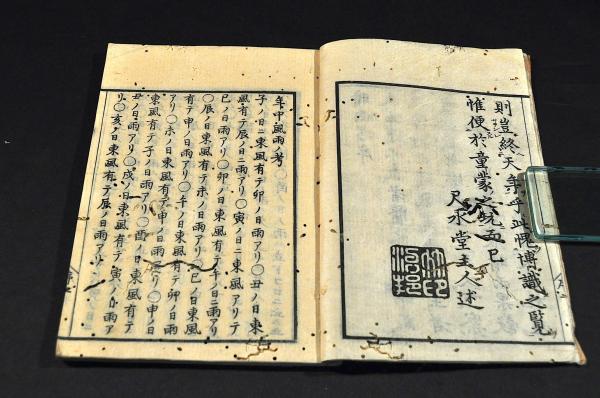 則豈終天年乎此愧博識之覧
惟便於童蒙
尺水堂主人述
年中風雨ノ考
子ノ日ニ東風有テ卯ノ日雨アリ〇丑ノ日東
風有テ辰ノ日ニ雨アリ〇寅ノ日ニ東風アリテ
巳ノ日雨アリ〇卯ノ日東風有テ午ノ日ニ雨アリ
〇辰ノ日東風有テ未ノ日雨アリ〇巳ノ日東風
有テ申ノ日雨アリ〇午ノ日東風有テ卯ノ日雨
アリ〇未ノ日東風有テ申ノ日雨アリ〇申ノ日
東風有テ子ノ日雨アリ〇酉ノ日東風有テ
丑ノ日雨アリ〇戌ノ日東風有テ寅ノ日雨ア
リ〇亥ノ日東風有テ辰ノ日雨アリ